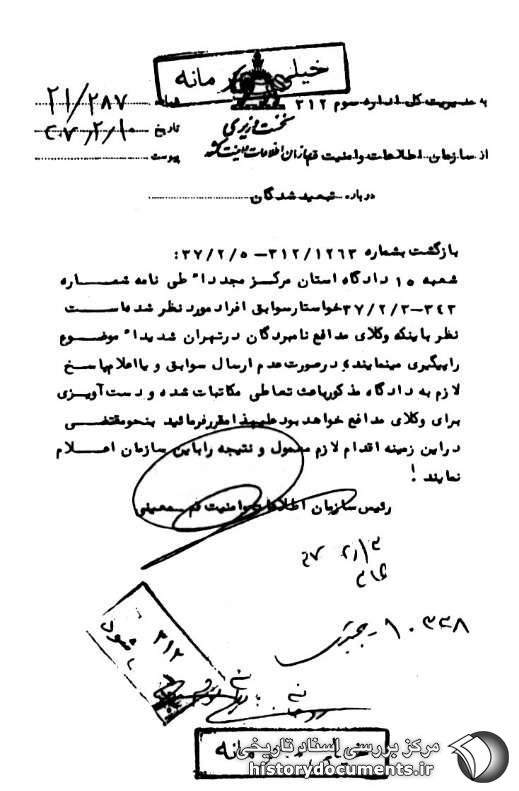 خیلی محرمانه
به مدیریت کل اداره سوم ۳۱۲
شماره ۲۱/۲۸۷
نخست وزیری
تاریخ ۳۷/۲/۱۰
سازمان اطلاعات و امنیت کشور
از سازمان اطلاعات و امنیت قم
پیوست
درباره تبعید شدگان
بازگشت بشماره ۳۱۲/۱۲۶۳-۳۷/۲/۵:
شعبه ۱۵ دادگاه استان مرکز مجدداً طی نامه شماره
۳۴۳-۳۷/۲/۳ خواستار سوابق افراد مورد نظر شده است
نظر باینکه وکلای مدافع نامبردگان در تهران شدیداً موضوع
را پیگیری مینمایند، در صورت عدم ارسال سوابق و یا اعلام پاسخ
لازم به دادگاه مذکور باعث تعاطی مکاتبات شده و دست آویزی
برای وکلای مدافع خواهد بود علیهذا مقرر فرمائید بنحو مقتضی
در این زمینه اقدام لازم معمول و نتیجه را باین سازمان اعلام
نمایند !
رئیس سازمان اطلاعات و امنیت قم - معینی
۳۱۲
شود
خیلی محرمانه
مرکز بررسی اسناد تاریخی
historydocuments.ir